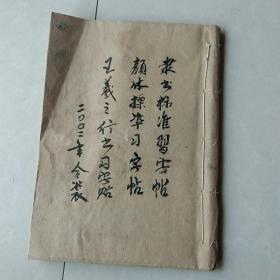 隶书标准習字帖
顔体標准习字帖
王羲之行书习字帖
二〇〇二年合装